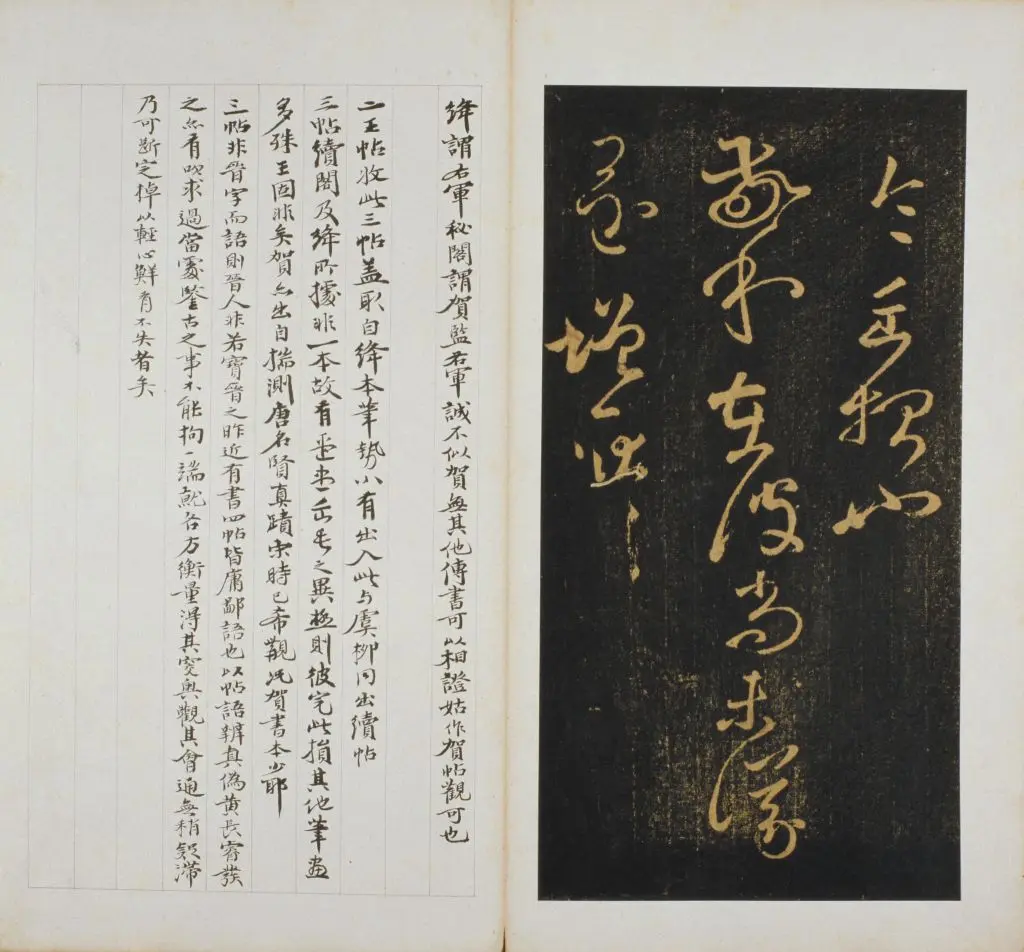 敬和在彼尚未議
還增耿耿
絳謂右軍秘閣謂賀監右軍誠不似賀無其他傳書可以相證姑作賀帖觀可也
二王帖收此三帖盖取自絳本筆勢小有出入此与虞柳同出續帖
三帖續閣及絳所據非一本故有 之異極則彼完此損其他筆畫
多殊王固非矣賀亦出自揣測唐名賢真蹟宋時已希觀况賀書本少耶
三帖非晉字而語則晉人非若寶晉之昨近有書四帖皆庸鄙語也以帖語辨真偽黄長睿發
之亦有吹求過當處鑒古之事不能拘一端就各方衡量淂其窔奥觀其會通無稍疑滞
乃可斷定掉以輕心鮮有不失者矣